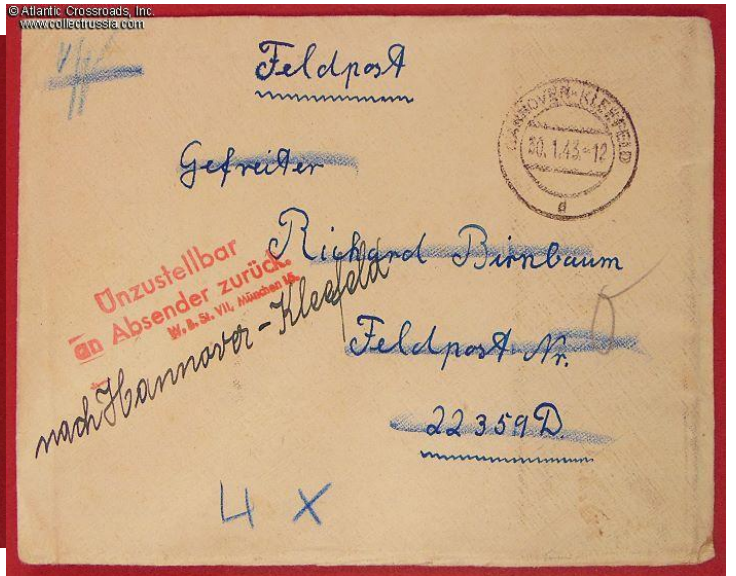 © Atlantic Crossroads, Inc.
www.collectrussia.com
Feldpost
HANNOVER-KLEEFELD
30.1.43.-12
d
Gefreiter
Richard Birnbaum
Unzustellbar
an Absender zurück.
W. B. St. VII, München 15.
nach Hannover-Kleefeld
Feldpost Nr.
22359D.
4 X